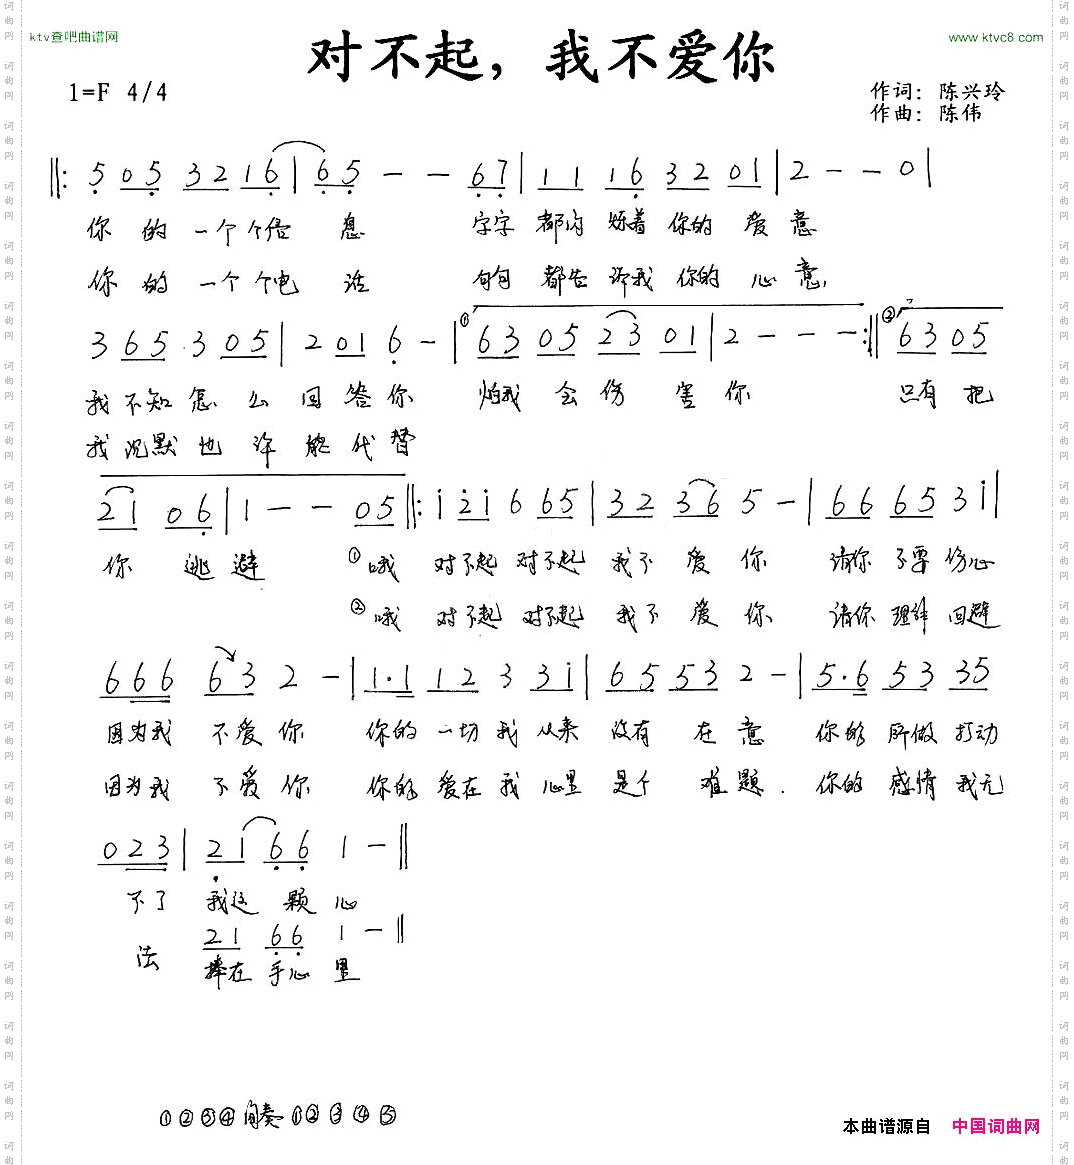 ktv查吧曲谱网
www.ktvc8.com
对不起，我不爱你
1=F 4/4
作词：陈兴玲
作曲：陈伟
‖: 5 05 32 16 | 65 - - 67 | 11 16 32 01 | 2 - - 0 |
你的一个个信息 字字都闪烁着你的爱意
你的一个个电话 句句都告诉我你的心意,
3 65 3 05 | 2 01 6 - | ① 63 05 23 01 | 2 - - - :‖ ② 63 05
我不知怎么回答你 怕我会伤害你 只有把
我沉默也许能代替
21 06 | 1 - - 05 ‖: i 2i 6 65 | 32 36 5 - | 66 65 3 i |
你逃避 ①哦 对不起 对不起 我不爱你 请你不要伤心
②哦 对不起 对不起 我不爱你 请你理解回避
666 63 2 - | 1·1 12 3 3i | 65 53 2 - | 5·6 53 35
因为我不爱你 你的一切我从来没有在意 你的所做打动
因为我不爱你 你的爱在我心里是个难题. 你的感情我无
023 | 21 66 1 - ‖
不了我这颗心
21 66 1 - ‖
法 捧在手心里
①②③④间奏①②③④⑤
本曲谱源自 中国词曲网